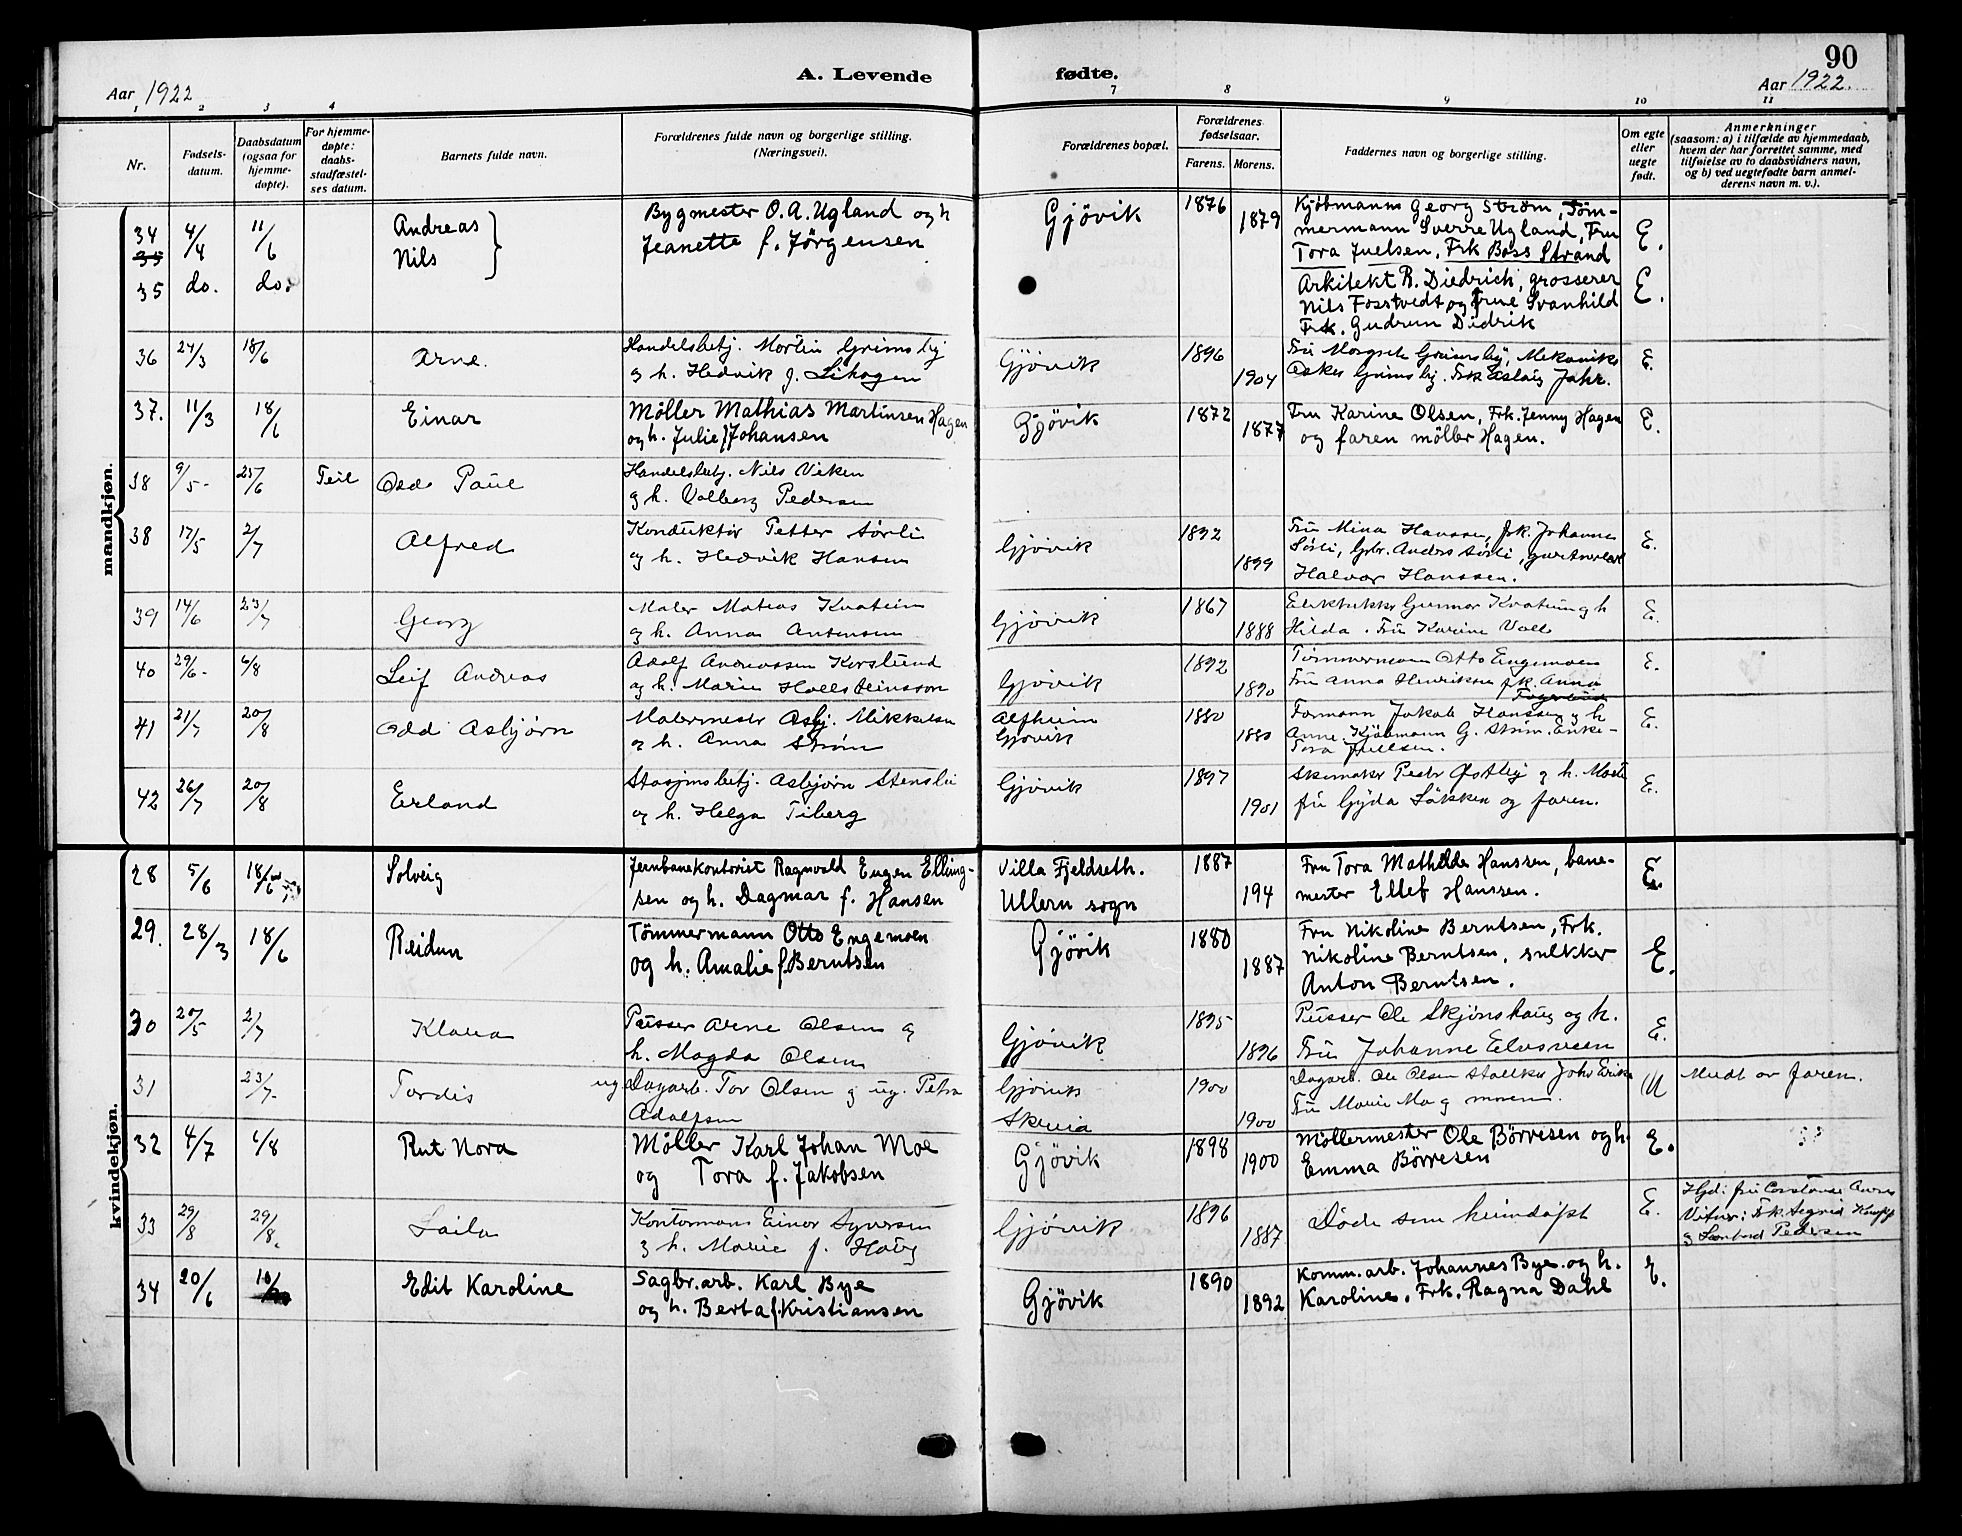 90
A. Levende fødte.
Aar 1922
Aar 1922.
1 2 3 4 7 8 9 10 11
Nr.
Fødsels-
datum.
Daabsdatum
(ogsaa for
hjemme-
døpte).
For hjemme-
døpte:
daabs-
stadfæstel-
ses datum.
Barnets fulde navn.
Forældrenes fulde navn og borgerlige stilling.
(Næringsvei).
Forældrenes bopæl.
Forældrenes
fødselsaar.
Farens.
Morens.
Faddernes navn og borgerlige stilling.
Om egte
eller
uegte
født.
Anmerkninger
(saasom: a) i tilfælde av hjemmedaab,
hvem der har forrettet samme, med
tilføielse av to daabsvidners navn,
og b) ved uegtefødte barn anmel-
derens navn m. v.).
mandkjøn.
34 4/4 11/6 Andreas Bygmester O. A. Ugland og h Gjövik 1876 1879 Kjöbmann Georg Ström, Töm-
35 Nils Jeanette f. Jörgensen mermann Sverre Ugland, Fru E.
Tora Juelsen, Frk Bass Strand
35 do. do. Arkitekt R. Diedrich, grosserer E.
Nils Fosstvedt og frue Svanhild
Frk. Gudrun Didrik
36 24/3 18/6 Arne. Handelsbetj. Martin Grimsby Gjövik 1896 E.
og h. Hedvik f. Lihagen 1904
37. 11/3 18/6 Einar Möller Mathias Martinsen Hagen Gjövik 1872 Fru Karine Olsen, Frk. Jenny Hagen E.
og h. Julie f Johansen 1877 og faren möller Hagen.
38 9/5- 25/6 Feil Odd Paul Handelsbetj. Nils Viken
og h. Valborg Pedersen
38 17/5 2/7 Alfred Konduktör Petter Sörli Gjövik 1892 Fru Mina Hanssen, frk. Johanne E.
og h. Hedvik Hansen 1899 Sörli, Gbr. Anders Sörli,
Halvor Hanssen.
39 14/6 23/7 Georg Maler Matias Kvatum Gjövik 1867 Gunnar Kvatum og h E.
og h. Anna Antonsen 1888 Hilda. Fru Karine Volle
40 29/6- 6/8 Leif Andreas Adolf Andreassen Korslund Gjövik 1892 Tömmermann Otto Engemoen E.
og h. Marie Hallsteinsson 1890 Fru Anna Henriksen frk. Anna
41 21/7 20/8 Odd Asbjørn Malermester Asbj. Mikkelsen Alfheim 1880 Formann Jakob Hanssen og h E.
og h. Anna Strøm Gjövik 1880 Anne. Kjöbmann G. Strøm. Enke-
Tora Juellsen.
42 26/7 20/8 Erland Stasjonsbetj. Asbjørn Stenslie Gjövik 1897 Skomaker Peder Østby og h. E.
og h. Helga Tiberg 1901 fru Gyda Løkken og faren.
kvindekjøn.
28 5/6 18/6 Solveig Jernbanekontorist Ragnvald Eugen Elling- Villa Fjeldseth. 1887 Fru Tora Mathilde Hanssen, bane- E.
sen og h. Dagmar f. Hansen Ullern sogn 194 mester Ellef Hanssen.
29. 28/3 18/6 Reidun Tömmermann Otto Engemoen Gjövik 1880 Fru Nikoline Berntsen, Frk. E.
og h. Amalie f. Berntsen 1887 Nikoline Berntsen, snekker
Anton Berntsen.
30 20/5 2/7 Klara Pusser Arne Olsen og Gjövik 1895 Pusser Ole Skjønshaug og h. E.
h. Magda Olsen 1896 Fru Johanne Elvsveen
31 23/7- Tordis ug. Dagarb. Tor Olsen og ug. Petra Gjövik 1900 Dagarb. Ole Olsen U Meldt av faren.
Adolfsen 1900 Fru Marie Mo og moren.
32 4/7 6/8 Rut Nora Möller Karl Johan Moe Gjövik 1898 Möllermester Ole Börresen og h. E.
og Tora f. Jakobsen 1900 Emma Börresen
33 29/8 29/8. Laila Kontormann Einar Syversen Gjövik 1896 Døde som heimdøpt E. Hjd: fru Constanse
og h. Marie f. Haug 1887 Vitner: Frk. Segrid
Pedersen
34 20/6 Edit Karoline Sagbr.arb. Karl Bye Gjövik 1890 Komm.arb. Johannes Bye og h. E.
og h. Berta f. Kristiansen 1892 Karoline. Frk. Ragna Dahl